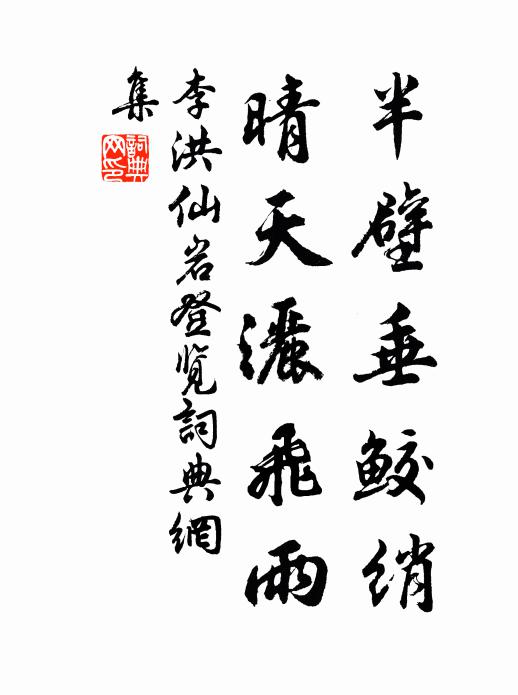 半壁垂鲛绡
晴天灑飛雨
李洪仙岩登览詞典網
集
詞典网印